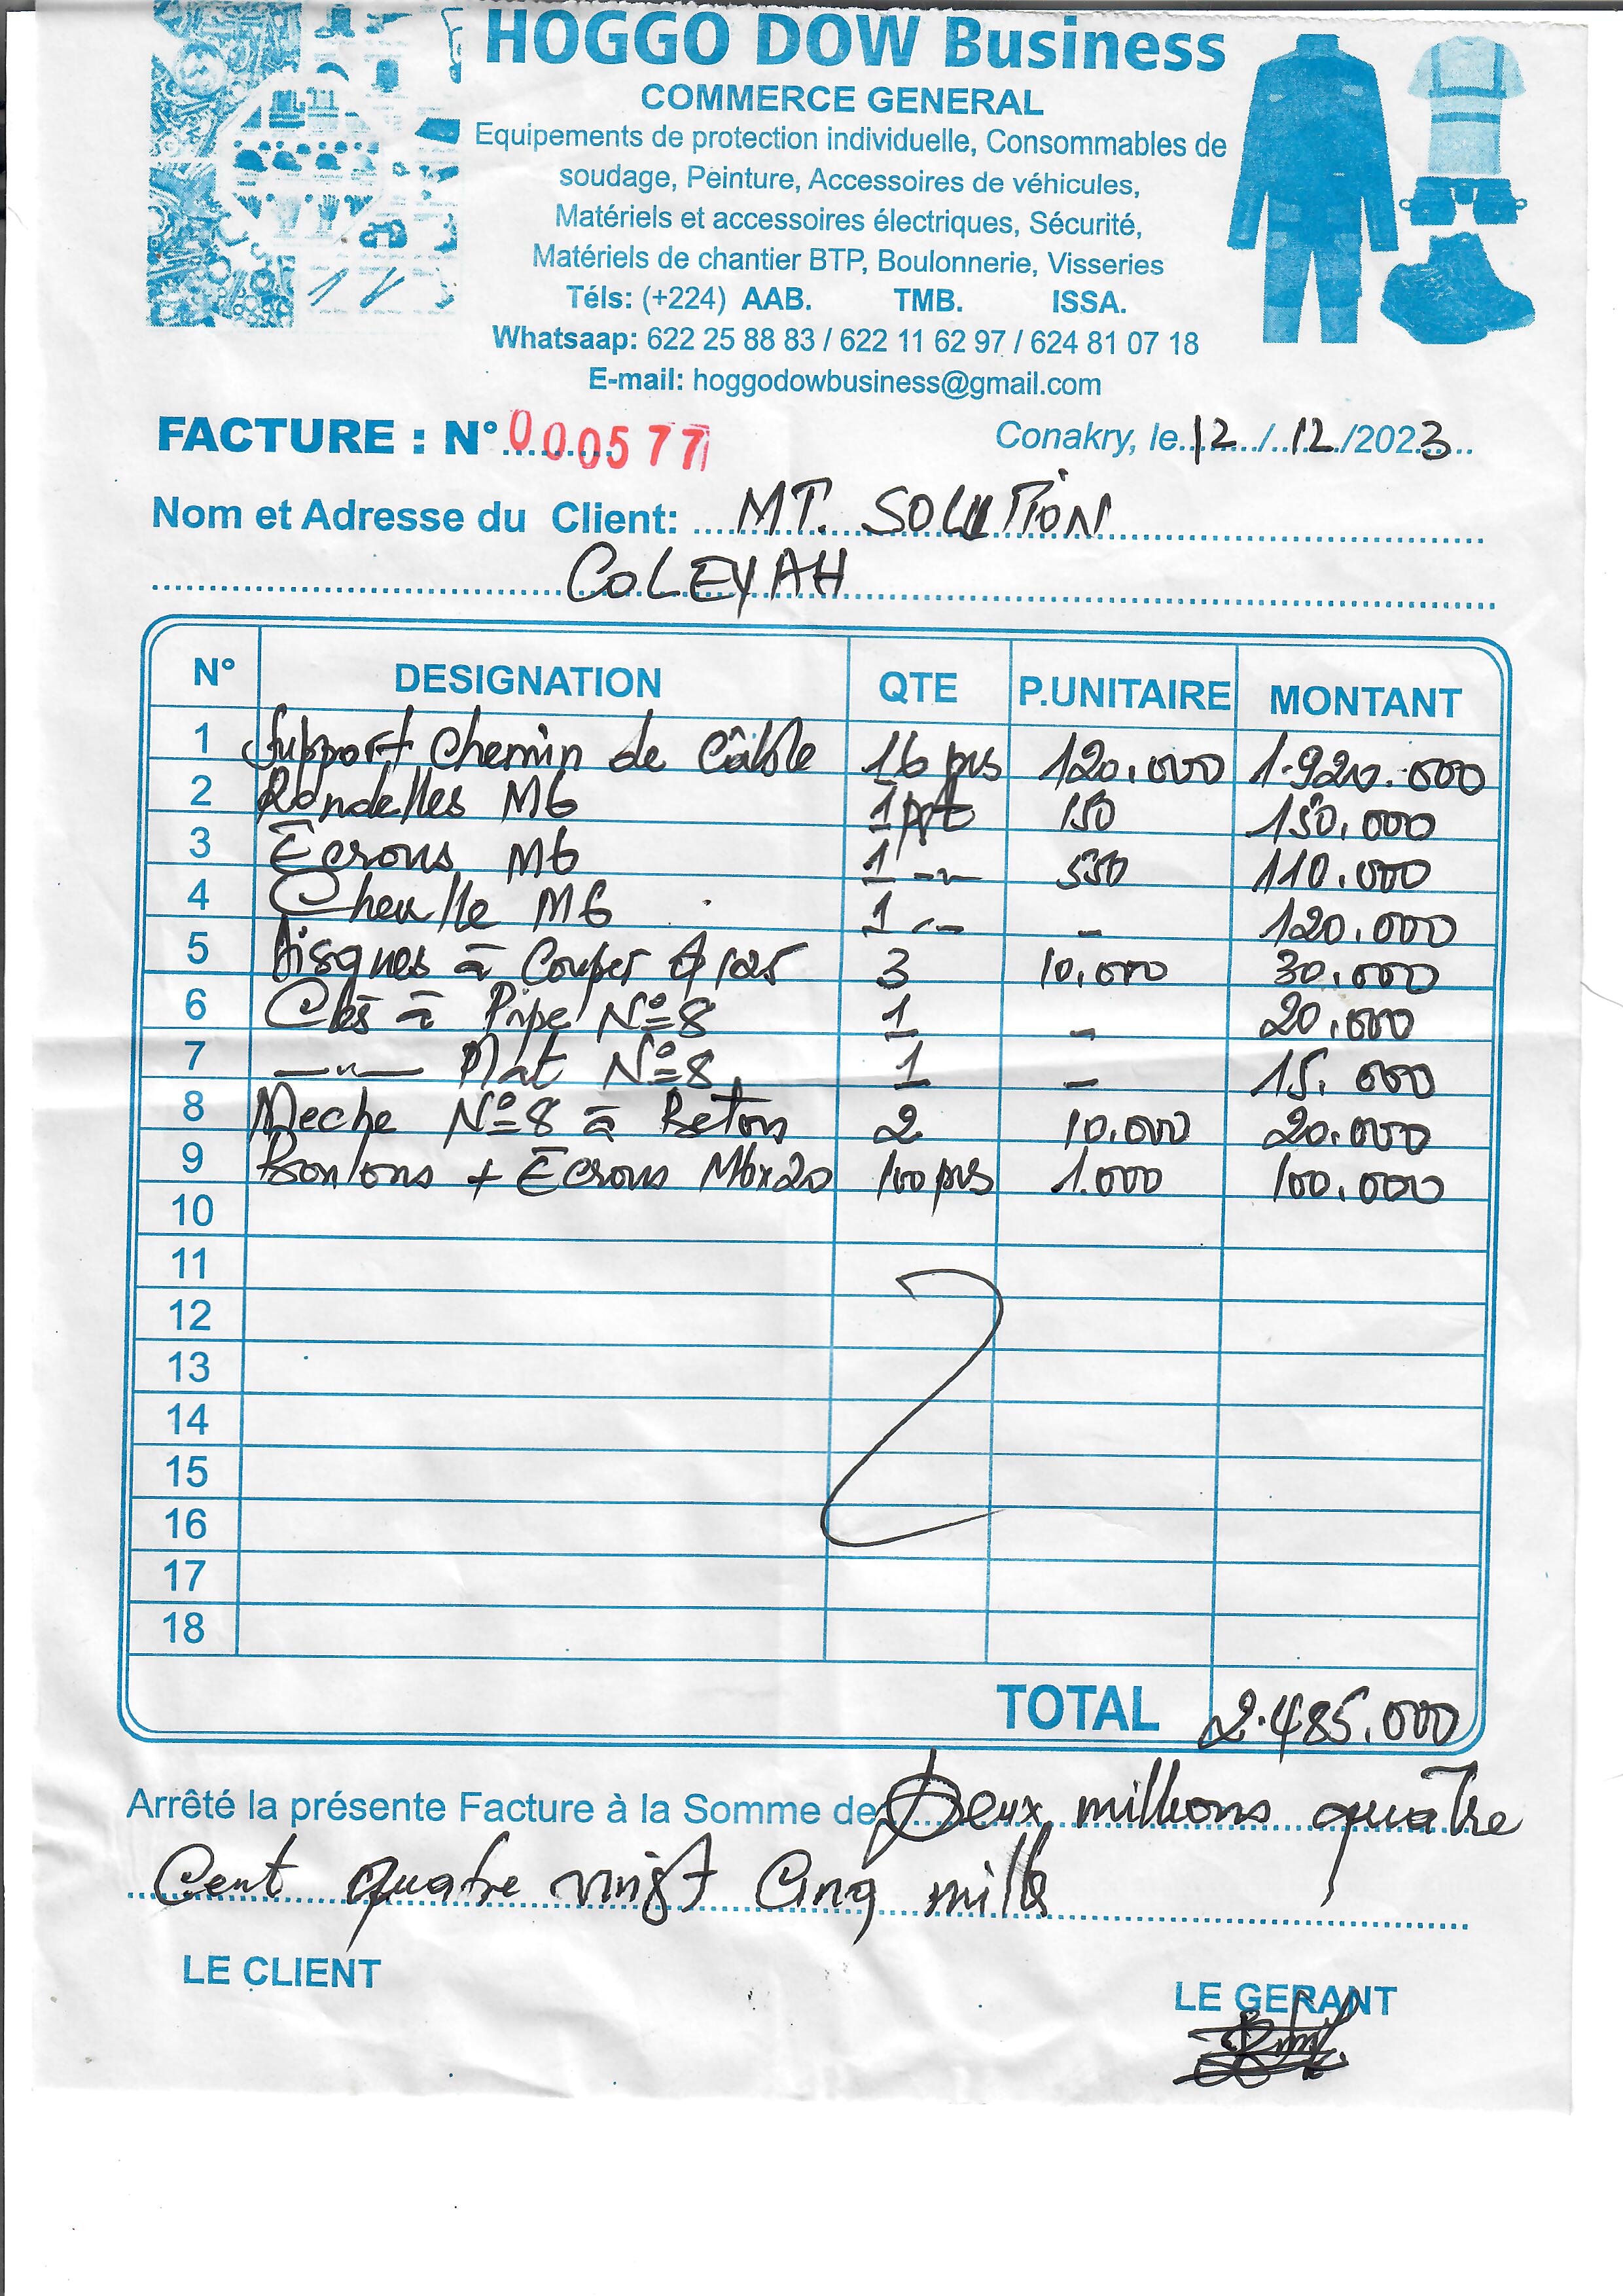 HOGGO DOW Business
COMMERCE GENERAL
Equipements de protection individuelle, Consommables de
soudage, Peinture, Accessoires de véhicules,
Matériels et accessoires électriques, Sécurité,
Matériels de chantier BTP, Boulonnerie, Visseries
Téls: (+224) AAB. TMB. ISSA.
Whatsaap: 622 25 88 83 / 622 11 62 97 / 624 81 07 18
E-mail: hoggodowbusiness@gmail.com
FACTURE : N° 000577 Conakry, le 12 / 12 /2023
Nom et Adresse du Client: MT. SOLUTION
COLEYAH
N° DESIGNATION QTE P.UNITAIRE MONTANT
1 Support chemin de Câble 16 pcs 120.000 1.920.000
2 Rondelles M6 1 pqt 150 150.000
3 Ecrous M6 1 -"- 550 110.000
4 Cheville M6 1 -"- - 120.000
5 Disques à Couper ϕ 125 3 10.000 30.000
6 Clés à Pipe N°8 1 - 20.000
7 —"— Plat N°8 1 - 15.000
8 Meche N°8 à Beton 2 10.000 20.000
9 Boulons + Ecrous M6x20 100 pcs 1.000 100.000
10
11
12
13
14
15
16
17
18
TOTAL 2.485.000
Arrêté la présente Facture à la Somme de Deux millions quatre
Cent quatre vingt Cinq mille
LE CLIENT
LE GERANT